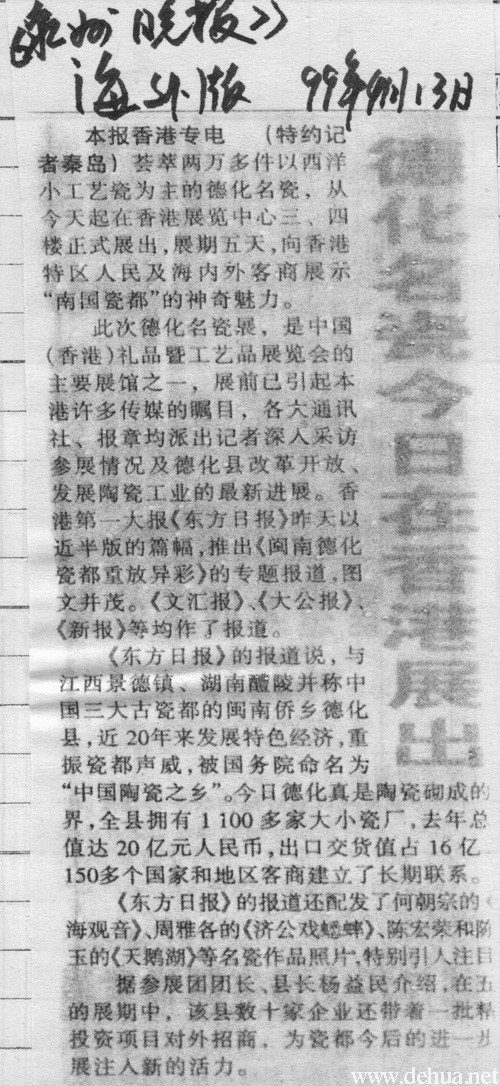 《泉州晚报》
海外版 99年9月13日
德化名瓷今日在香港展出
本报香港专电 (特约记
者秦岛) 荟萃两万多件以西洋
小工艺瓷为主的德化名瓷，从
今天起在香港展览中心三、四
楼正式展出，展期五天，向香港
特区人民及海内外客商展示
“南国瓷都”的神奇魅力。
此次德化名瓷展，是中国
(香港)礼品暨工艺品展览会的
主要展馆之一，展前已引起本
港许多传媒的瞩目，各大通讯
社、报章均派出记者深入采访
参展情况及德化县改革开放、
发展陶瓷工业的最新进展。香
港第一大报《东方日报》昨天以
近半版的篇幅，推出《闽南德化
瓷都重放异彩》的专题报道，图
文并茂。《文汇报》、《大公报》、
《新报》等均作了报道。
《东方日报》的报道说，与
江西景德镇、湖南醴陵并称中
国三大古瓷都的闽南侨乡德化
县，近20年来发展特色经济，重
振瓷都声威，被国务院命名为
“中国陶瓷之乡”。今日德化真是陶瓷砌成的
界，全县拥有1100多家大小瓷厂，去年总
值达20亿元人民币，出口交货值占16亿
150多个国家和地区客商建立了长期联系。
《东方日报》的报道还配发了何朝宗的《
海观音》、周雅各的《济公戏蟋蟀》、陈宏荣和陈
玉的《天鹅湖》等名瓷作品照片，特别引人注目
据参展团团长、县长杨益民介绍，在五
的展期中，该县数十家企业还带着一批精
投资项目对外招商，为瓷都今后的进一步
展注入新的活力。
www.dehua.net